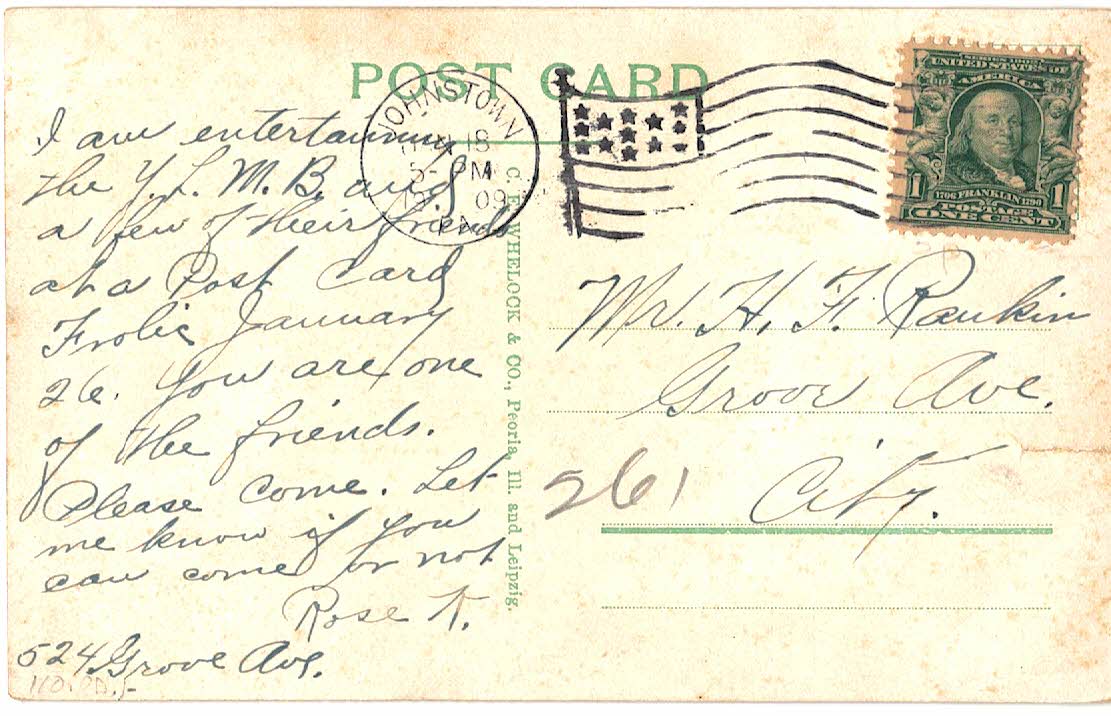 POST CARD
I am entertaining
the Y. L. M. B. and
a few of their friends
at a Post Card
Frolic January
26. You are one
of the friends.
Please come. Let
me know if you
can come or not
Rose K.
524 Grove Ave.
JOHNSTOWN
18
5- PM
09
PA.
C. E. WHELOCK & CO., Peoria, Ill. and Leipzig.
UNITED STATES OF
AMERICA
1706 FRANKLIN 1790
1 POSTAGE 1
ONE CENT
Mr. H. F. Rankin
Grove Ave.
City.
261